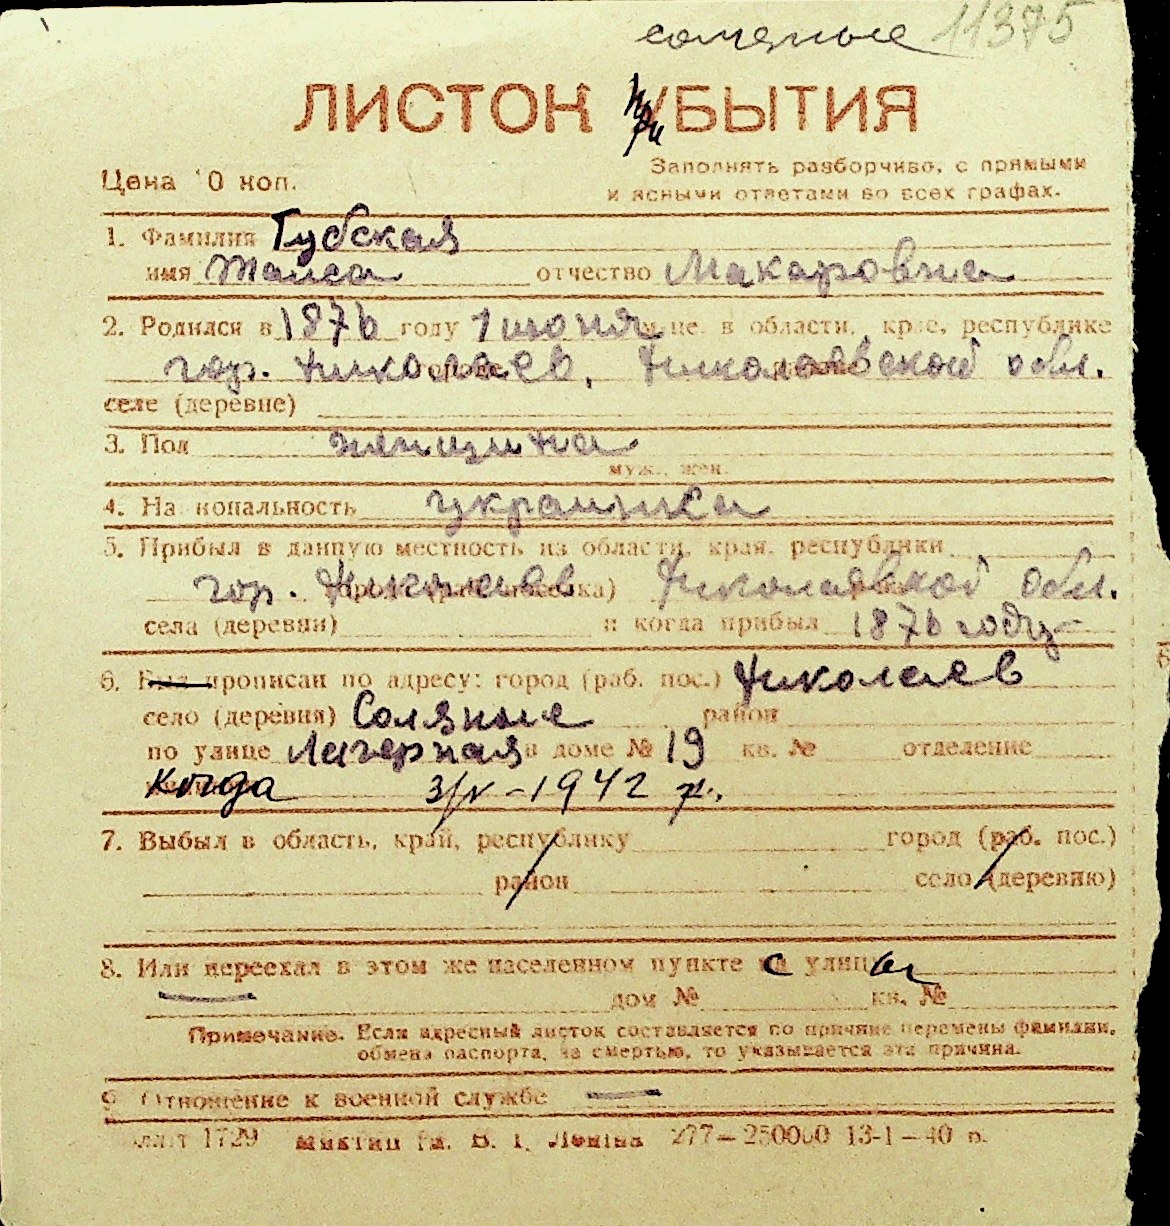 соленые 11375
ЛИСТОК приБЫТИЯ
Цена 10 коп.
Заполнять разборчиво, с прямыми
и ясными ответами во всех графах.
1. Фамилия Губская
имя Таиса отчество Макаровна
2. Родился в 1876 году 1 июня м-це в области, крае, республике
гор. Николаев, Николаевской обл.
селе (деревне)
3. Пол женщина
муж., жен.
4. Национальность украинка
5. Прибыл в данную местность из области, края, республики
гор. Николаев Николаевской обл.
села (деревни) и когда прибыл 1876 году
6. Был прописан по адресу: город (раб. пос.) Николаев
село (деревня) Соляные район
по улице Лагерная в доме № 19 кв. № отделение
когда 3/IV-1942 г.
7. Выбыл в область, край, республику город (раб. пос.)
район село (деревню)
8. Или переехал в этом же населенном пункте с улицы
дом № кв. №
Примечание. Если адресный листок составляется по причине перемены фамилии,
обмена паспорта, за смертью, то указывается эта причина.
9. Отношение к военной службе —
1729 им. В. І. Леніна 277—250000 13-1—40 р.